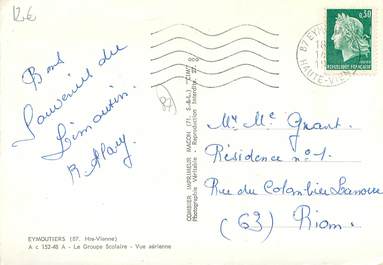 12€
Bons
Souvenirs du
Limousin
R. Mary
EYMOUTIERS (87. Hte-Vienne)
A c 152-48 A - Le Groupe Scolaire - Vue aérienne
COMBIER IMPRIMEUR MACON (71. S.-&-L.) "CIM"
Photographie Véritable - Reproduction Interdite
87 EYM
HAUTE-VIEN
0,30
REPUBLIQUE FRANÇAISE
Mr Me Grant.
Résidence n° 1.
Rue du Colombier
(63) Riom.